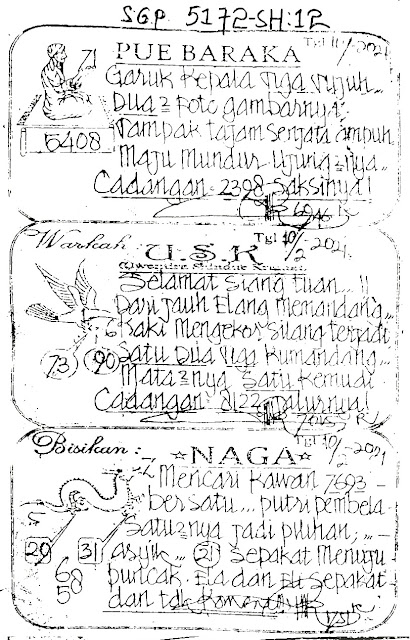 SGP. 5172-SH:12
PUE BARAKA
71
Garuk Kepala Tiga Tujuh...
Dua2 Foto gambarnya.
Tampak tajam Senjata ampuh
5408
Maju Mundur Ujung2nya...
Cadangan. 2398 Saksinya!
Warkah: U.S.K Tgl 10/2-2021
Selamat Siang tuan... !!
Dari jauh Elang Memandang...
6 Kaki Mengekor Silang terjadi
73 90 Satu Dua Tiga Kumandang...
Mata2nya Satu Kemudi
Cadangan. 8122 Jalurnya!
Bisikan: NAGA
Mencari Kawan 7693 -
bersatu... putri pembela
Satu2nya jadi pilihan, ... -
29 31 asyik... 21 Sepakat Menuju
68 puncak. Ela dan Eli Sepakat
58 dan tdk